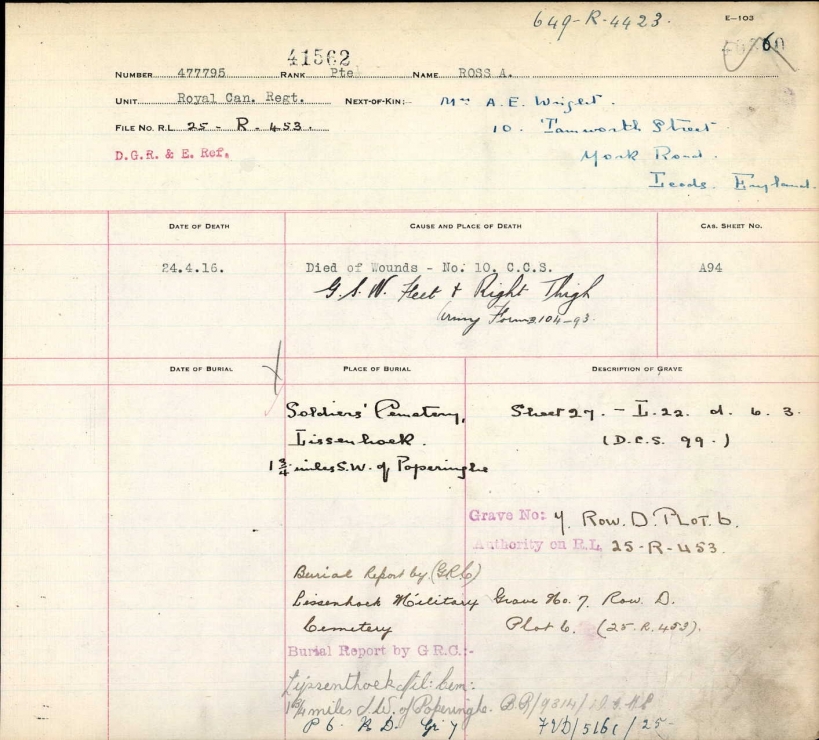 649-R-4423.
E-103
41562
NUMBER 477795 RANK Pte NAME ROSS A.
UNIT Royal Can. Regt. NEXT-OF-KIN:- Mrs A.E. Wright.
FILE NO. R.L. 25 - R - 453. 10. Tamworth Street
D.G.R. & E. Ref. York Road.
Leeds. England.
DATE OF DEATH CAUSE AND PLACE OF DEATH CAS. SHEET NO.
24.4.16. Died of Wounds - No. 10. C.C.S. A94
G.S.W. Feet & Right Thigh
Army Form B.104-93.
DATE OF BURIAL PLACE OF BURIAL DESCRIPTION OF GRAVE
Soldiers' Cemetery, Sheet 27. - L. 22. d. 6. 3.
Lissenhoek. (D.C.S. 99.)
1 3/4 miles S.W. of Poperinghe
Grave No: 7. Row. D. PLOT. 6.
Authority on R.L. 25-R-453.
Burial Report by (GRC)
Lissenhoek Military Grave No. 7. Row. D.
Cemetery Plot 6. (25.R.453).
Burial Report by G R.C.:-
Lijssenthoek Mil: Cem:
1 3/4 miles S.W. of Poperinghe. B.R/9314/
P 6. R D. Gr 7 7VD/516c/25-